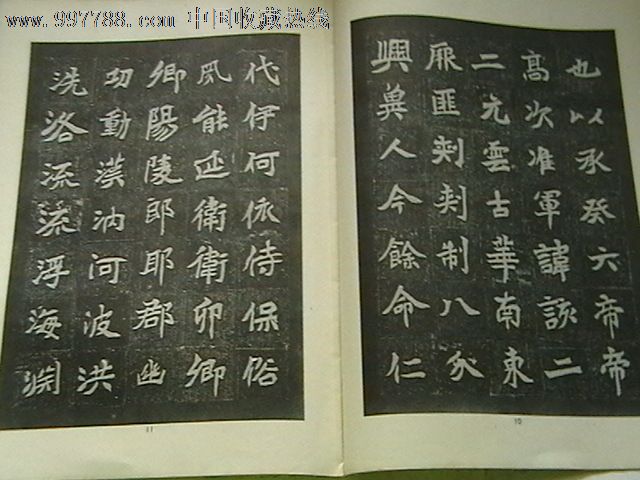 www.997788.com 中国收藏热线
也以承癸六帝帝
高次准軍諱該二
二元雲古華南東
匪刾刾制八
興與人今餘命仁
10
代伊何依侍保俗
風能延衛衛卯卿
卿陽陵郎耶郡幽
功動漢汭河波洪
洗洛流流浮海淵
11